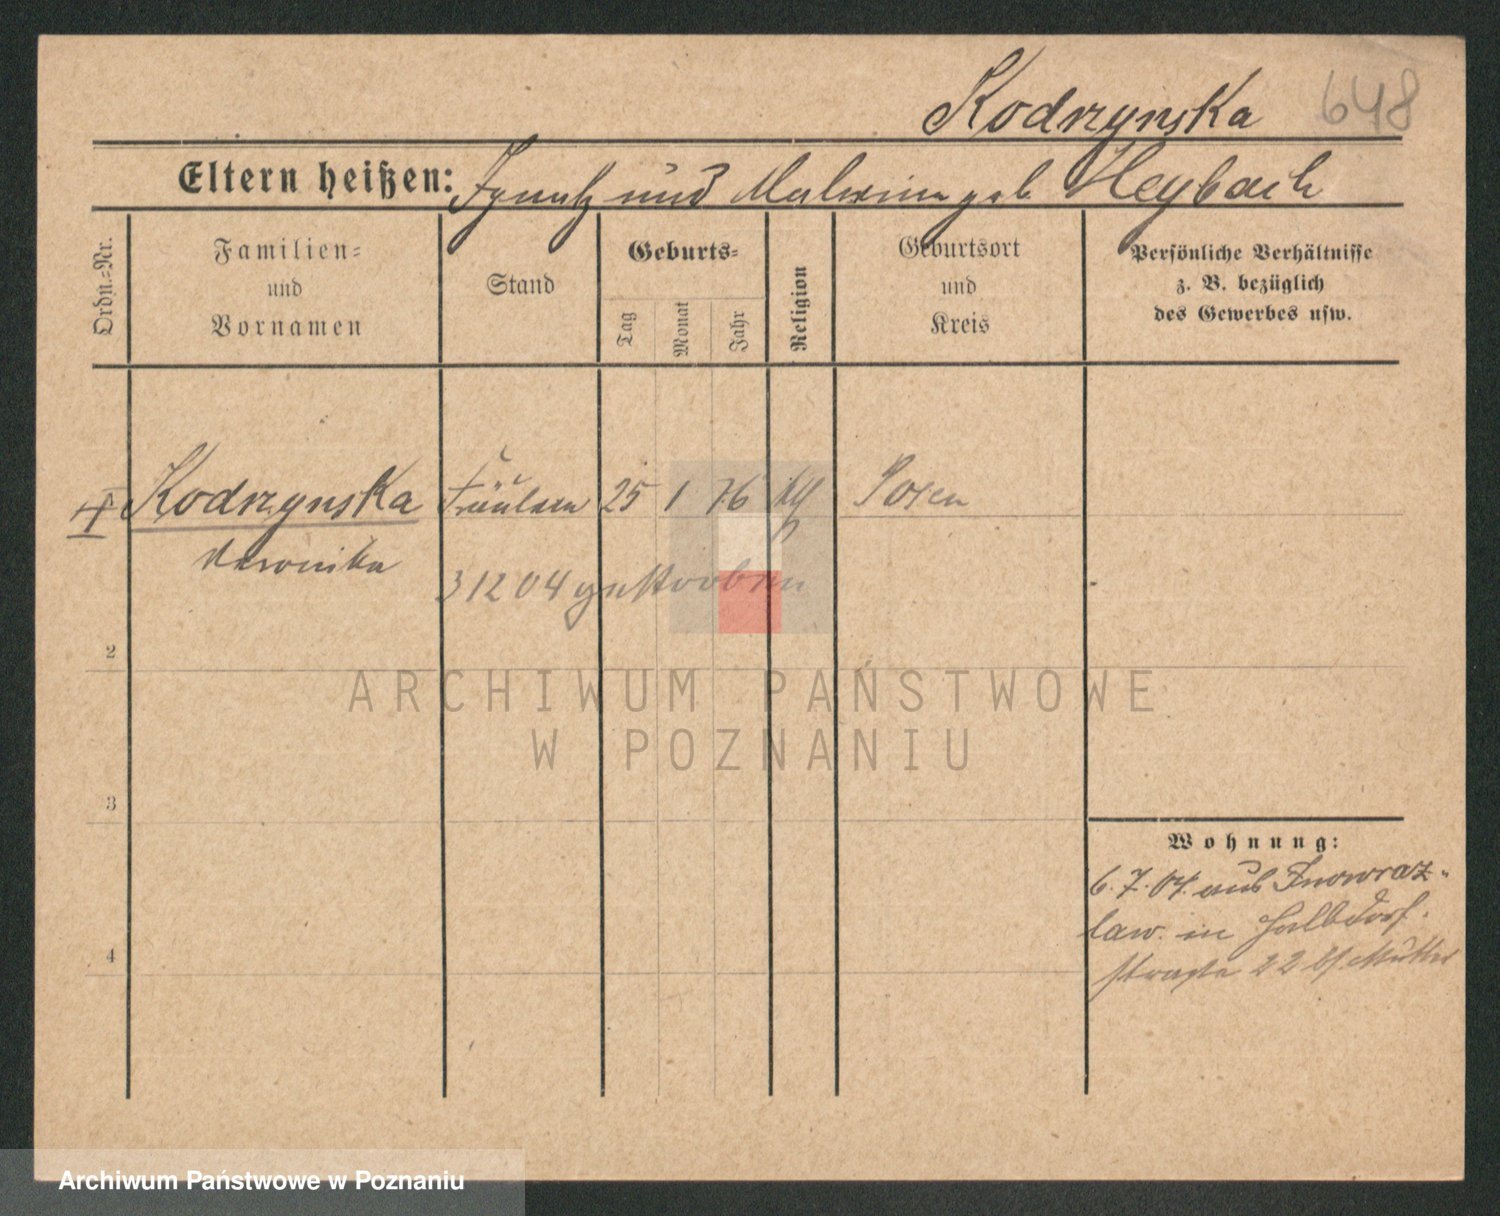 Kodrzynska 648
Eltern heißen: Ignatz und Malwine geb Heybach
Ordn.=Nr.
Familien=
und
Vornamen
Stand
Geburts=
Tag
Monat
Jahr
Religion
Geburtsort
und
Kreis
Persönliche Verhältnisse
z. B. bezüglich
des Gewerbes usw.
Kodrzynska Fräulein 25 1 76 kth Posen
Veronika
3 12 04 gestorben
2
3
4
Wohnung:
6.7.04. aus Inowraz-
law. in Halbdorf-
straße 22 b/ Mutter
ARCHIWUM PAŃSTWOWE
W POZNANIU
Archiwum Państwowe w Poznaniu